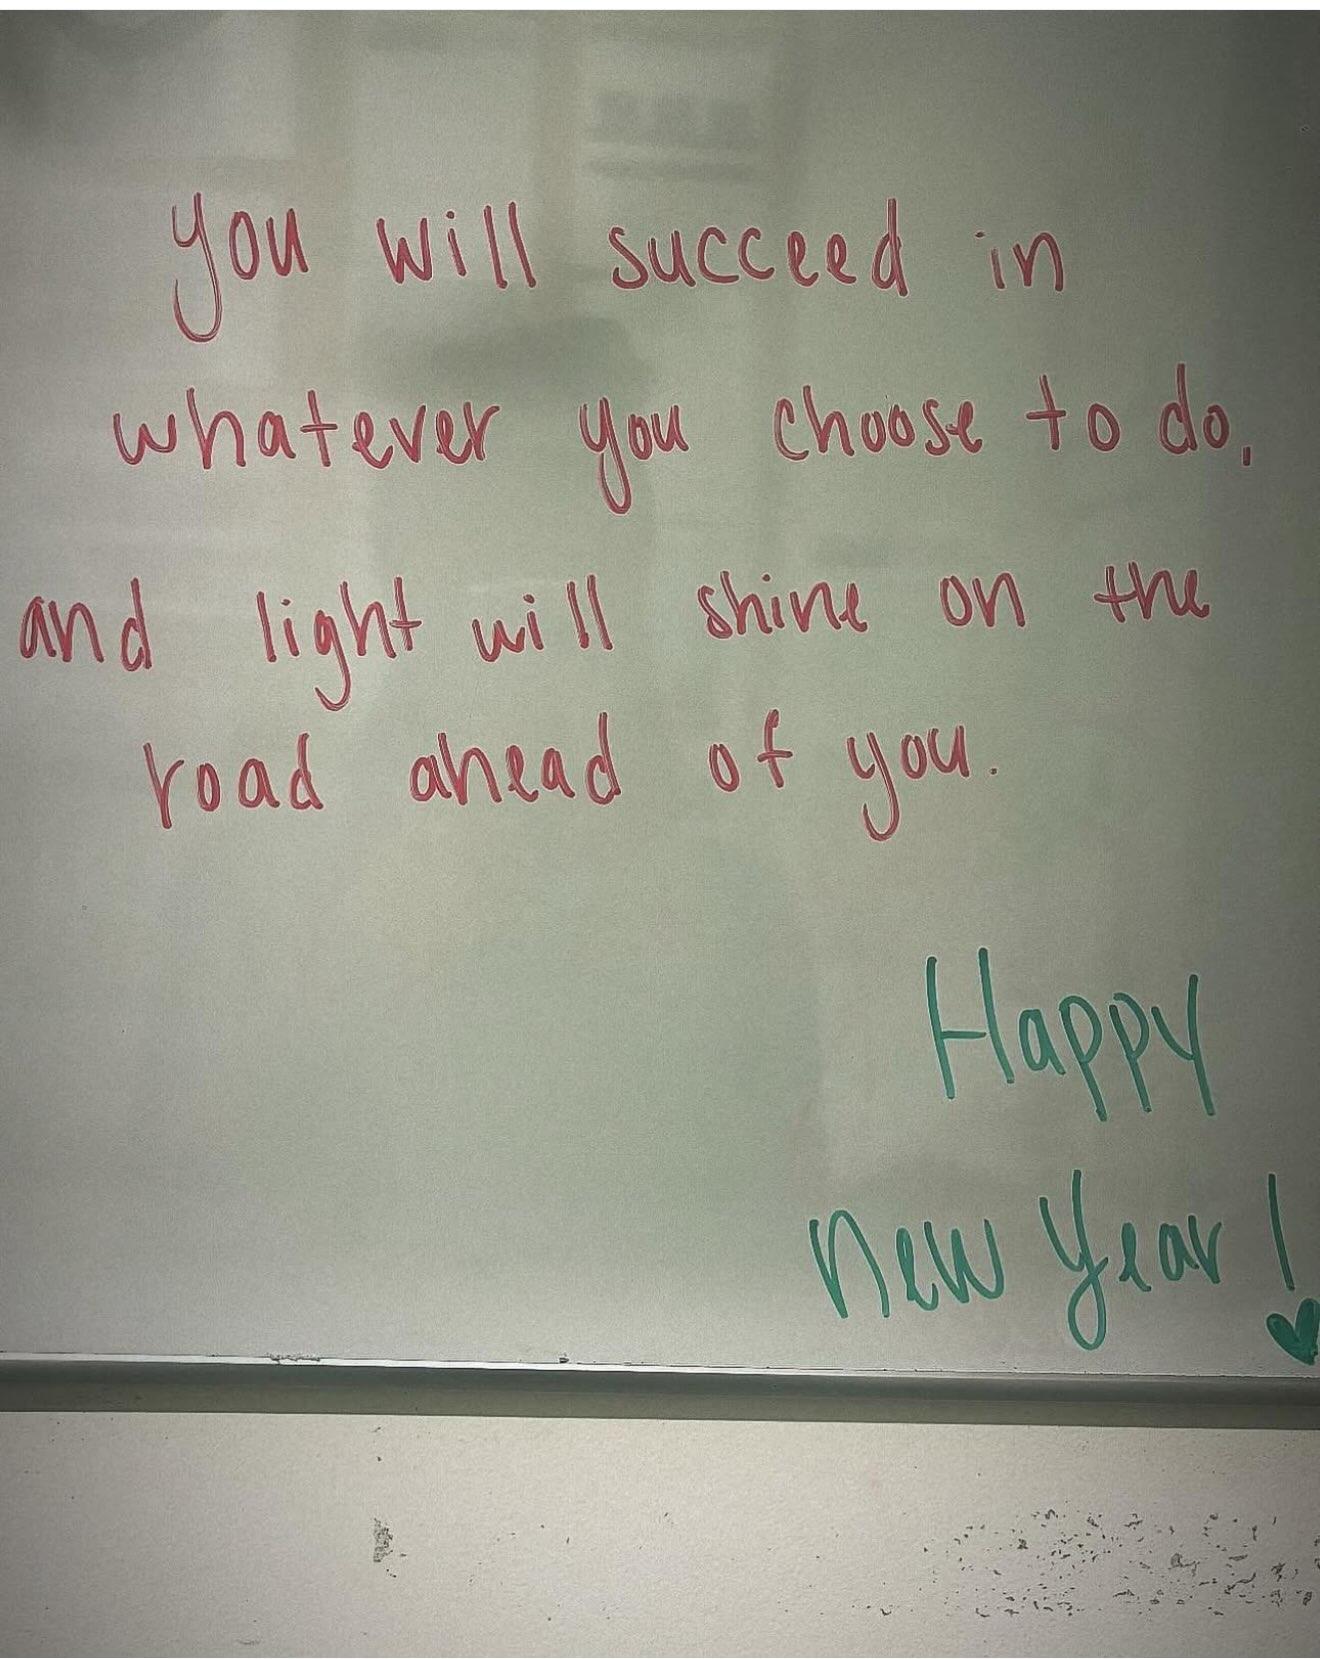 you will succeed in
whatever you choose to do,
and light will shine on the
road ahead of you.
Happy
new Year!